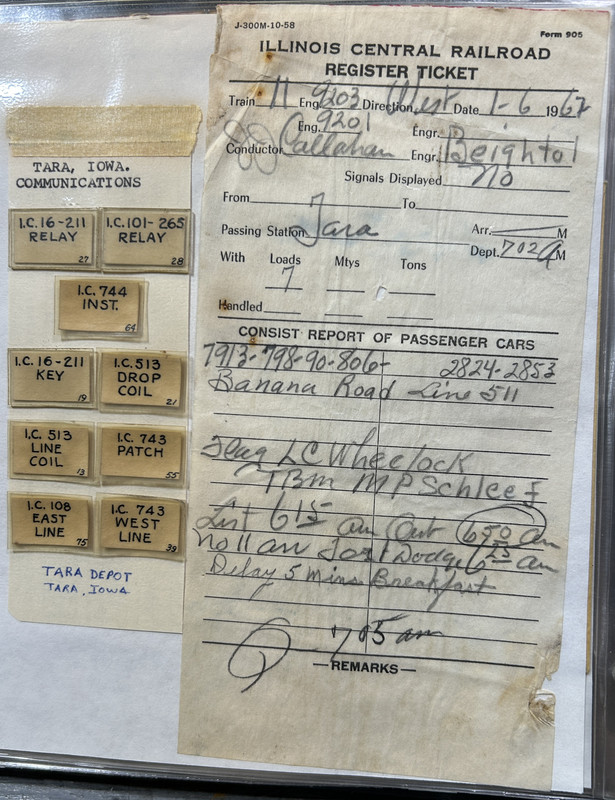 TARA, IOWA.
COMMUNICATIONS
I.C. 16-211
RELAY
27
I.C. 101-265
RELAY
28
I.C. 744
INST.
64
I.C. 16-211
KEY
19
I.C. 513
DROP
COIL
21
I.C. 513
LINE
COIL
13
I.C. 743
PATCH
55
I.C. 108
EAST
LINE
75
I.C. 743
WEST
LINE
39
TARA DEPOT
TARA, IOWA
J-300M-10-58
Form 905
ILLINOIS CENTRAL RAILROAD
REGISTER TICKET
Train 11 Eng. 9203 Direction West Date 1-6 1962
Eng. 9201 Engr.
Conductor Callahan Engr. Beightol
Signals Displayed No
From To
Passing Station Tara Arr. M
Dept. 702 A M
With Loads Mtys Tons
7
Handled
CONSIST REPORT OF PASSENGER CARS
7913-798-90-806- 2824-2853
Banana Road Line 511
Flag LC Wheelock
TBm MP Schleef
List 6 15 am Out 6 50 am
No 11 arr Fort Dodge 6 25 am
Delay 5 mins Breakfast
7 05 am
—REMARKS—